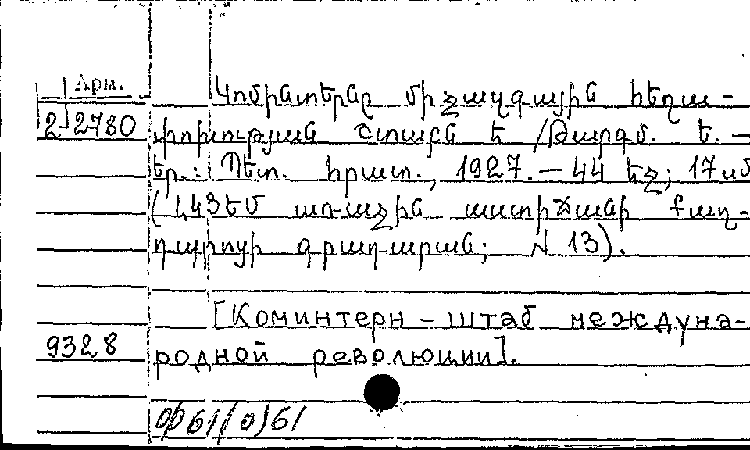 Արխ.
2 2780
Կոմինտերնը միջազգային հեղա-
փոխության շտաբն է /Թարգմ. Ե. —
Եր.: Պետ. հրատ., 1927. — 44 էջ; 17սմ
(ԼԿՅԵՄ առաջին աստիճանի քաղ-
դպրոցի գրադարան; N 13).
[Коминтерн – штаб междуна-
9328 родной революции].